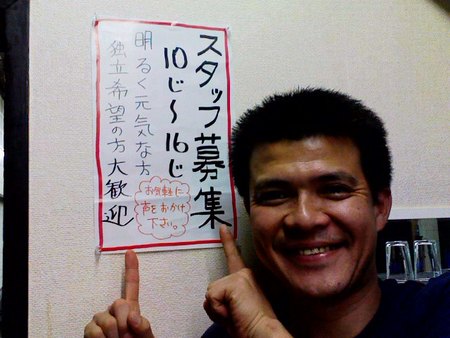 スタッフ募集
10じ～16じ
明るく元気な方
独立希望の方大歓迎
お気軽に
声をおかけ
下さい。